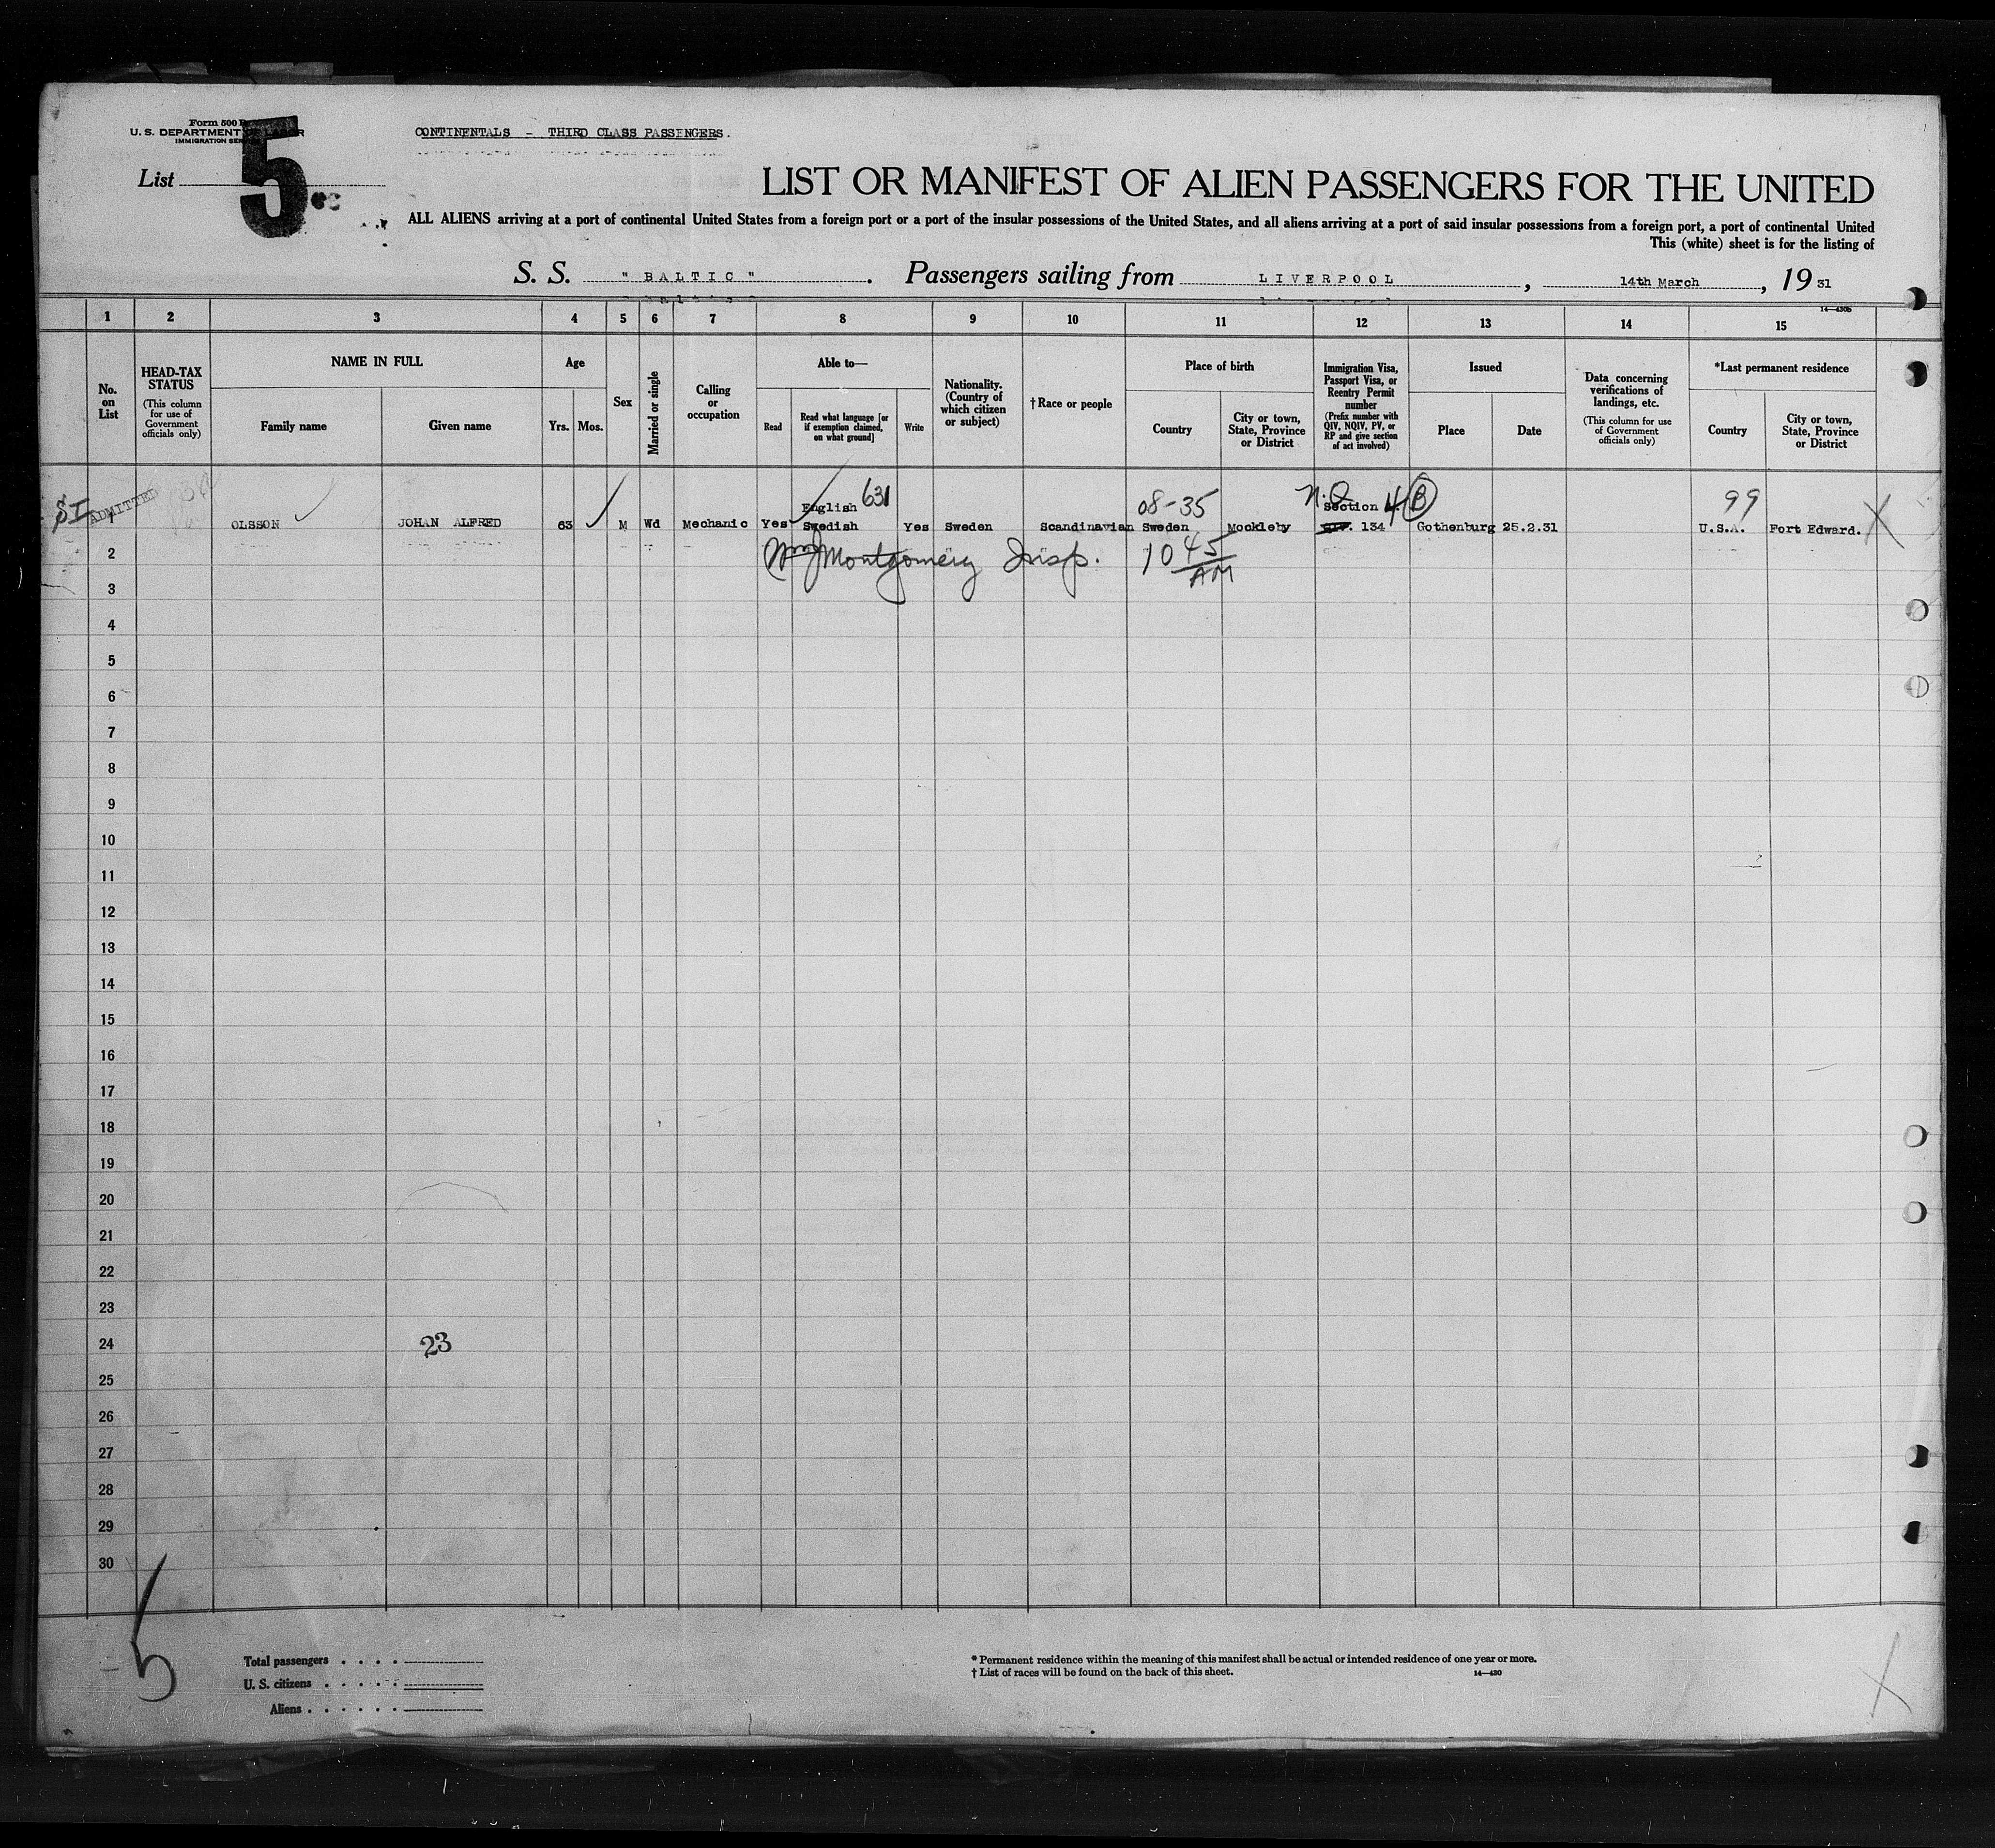 Form 500
U. S. DEPARTMENT OF LABOR
IMMIGRATION SERVICE
CONTINENTALS - THIRD CLASS PASSENGERS.
List 5
LIST OR MANIFEST OF ALIEN PASSENGERS FOR THE UNITED
ALL ALIENS arriving at a port of continental United States from a foreign port or a port of the insular possessions of the United States, and all aliens arriving at a port of said insular possessions from a foreign port, a port of continental United
This (white) sheet is for the listing of
S. S. "BALTIC". Passengers sailing from LIVERPOOL, 14th March, 1931
14—430b
1 2 3 4 5 6 7 8 9 10 11 12 13 14 15
No. on List
HEAD-TAX STATUS (This column for use of Government officials only)
NAME IN FULL
Family name
Given name
Age
Yrs. Mos.
Sex
Married or single
Calling or occupation
Able to—
Read
Read what language [or if exemption claimed, on what ground]
Write
Nationality. (Country of which citizen or subject)
†Race or people
Place of birth
Country
City or town, State, Province or District
Immigration Visa, Passport Visa, or Reentry Permit number (Prefix number with QIV, NQIV, PV, or RP and give section of act involved)
Issued
Place
Date
Data concerning verifications of landings, etc. (This column for use of Government officials only)
*Last permanent residence
Country
City or town, State, Province or District
English 631 08-35 Section 4 B 99
SI ADMITTED 1 OLSSON JOHAN ALFRED 63 M Wd Mechanic Yes Swedish Yes Sweden Scandinavian Sweden Mockleby 134 Gothenburg 25.2.31 U.S.A. Fort Edward. X
2 Montgomery Insp. 10 45 AM
3
4
5
6
7
8
9
10
11
12
13
14
15
16
17
18
19
20
21
22
23
24 23
25
26
27
28
29
30
5
Total passengers
U. S. citizens
Aliens
* Permanent residence within the meaning of this manifest shall be actual or intended residence of one year or more.
† List of races will be found on the back of this sheet.
14—430
X